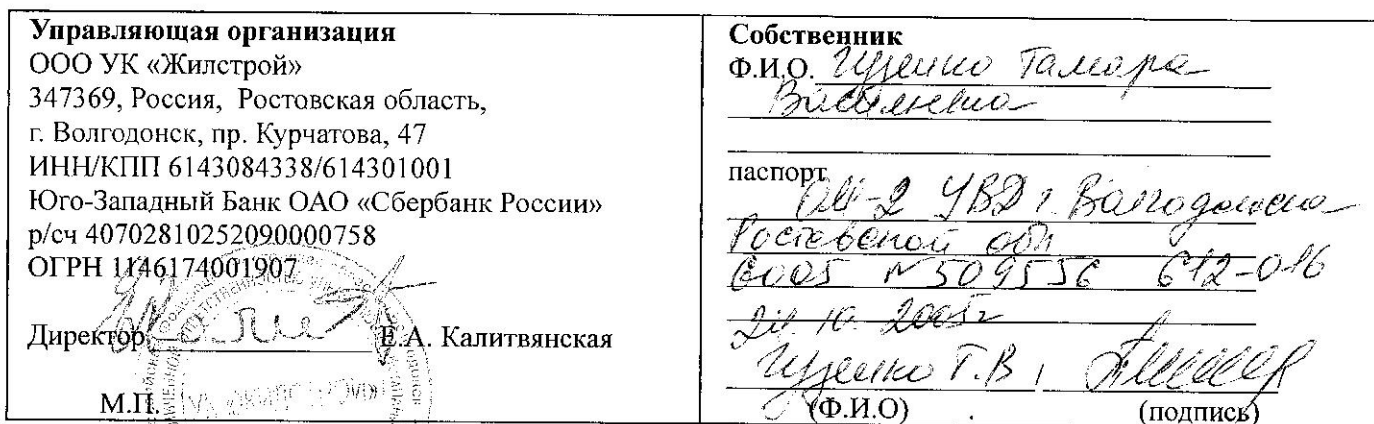 Управляющая организация
ООО УК «Жилстрой»
347369, Россия, Ростовская область,
г. Волгодонск, пр. Курчатова, 47
ИНН/КПП 6143084338/614301001
Юго-Западный Банк ОАО «Сбербанк России»
р/сч 40702810252090000758
ОГРН 1146174001907
Директор Е.А. Калитвянская
М.П.
Собственник
Ф.И.О. Тамара
Васильевна
паспорт
ОМ-2 УВД г. Волгодонска
Ростовской обл
6005 N 509556 612-016
10. 2005г
Т.В.
(Ф.И.О) (подпись)